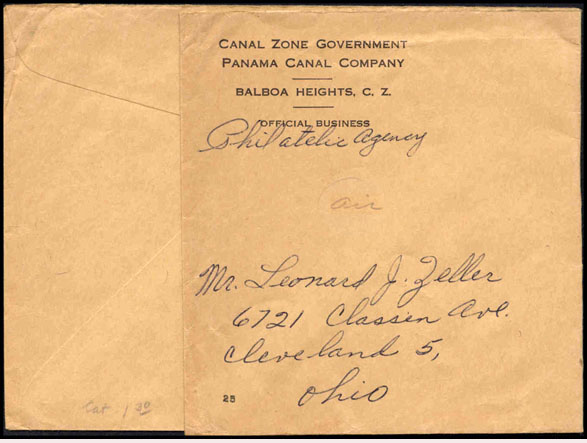 CANAL ZONE GOVERNMENT
PANAMA CANAL COMPANY
BALBOA HEIGHTS, C. Z.
OFFICIAL BUSINESS
Philatelic Agency
air
Mr. Leonard J. Zeller
6721 Classen Ave.
Cleveland 5,
Ohio
25
Cat 1 30